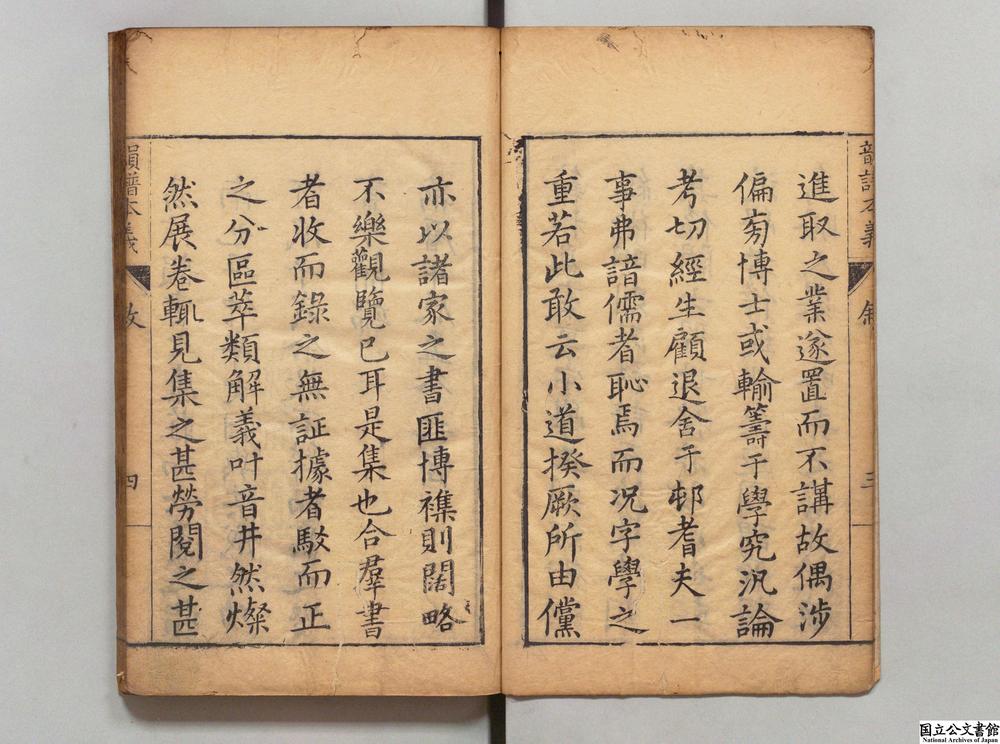 進取之業遂置而不講故偶涉
偏旁博士或輸籌于學究汎論
考切經生顧退舍于邨耆夫一
事弗諳儒者恥焉而况字學之
重若此敢云小道揆厥所由儻
亦以諸家之書匪博襍則闊略
不樂觀覽已耳是集也合羣書
者收而錄之無証據者駁而正
之分區萃類解義叶音井然燦
然展卷輒見集之甚勞閱之甚
韻譜本義
叙
三
韻譜本義
叙
四
国立公文書館
National Archives of Japan